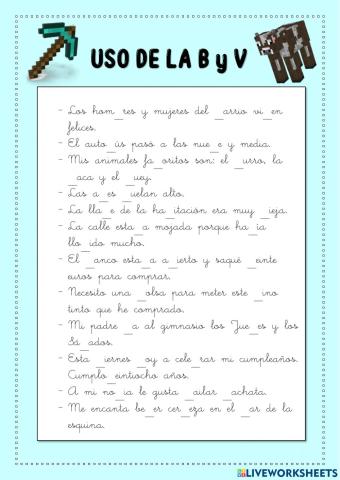 USO DE LA B y V
- Los hom_res y mujeres del _arrio vi_en
felices.
- El auto_ús pasó a las nue_e y media.
- Mis animales fa_oritos son: el _urro, la
_aca y el _uey.
- Las a_es _uelan alto.
- La lla_e de la ha_itación era muy _ieja.
- La calle esta_a mojada porque ha_ia
llo_ido mucho.
- El _anco esta_a a_ierto y saqué _einte
euros para comprar.
- Necesito una _olsa para meter este _ino
tinto que he comprado.
- Mi padre _a al gimnasio los Jue_es y los
Sá_ados.
- Esta _iernes _oy a cele_rar mi cumpleaños.
Cumplo_eintiocho años.
- A mi no_ia le gusta _ailar _achata.
- Me encanta be_er cer_eza en el _ar de la
esquina.
LIVEWORKSHEETS